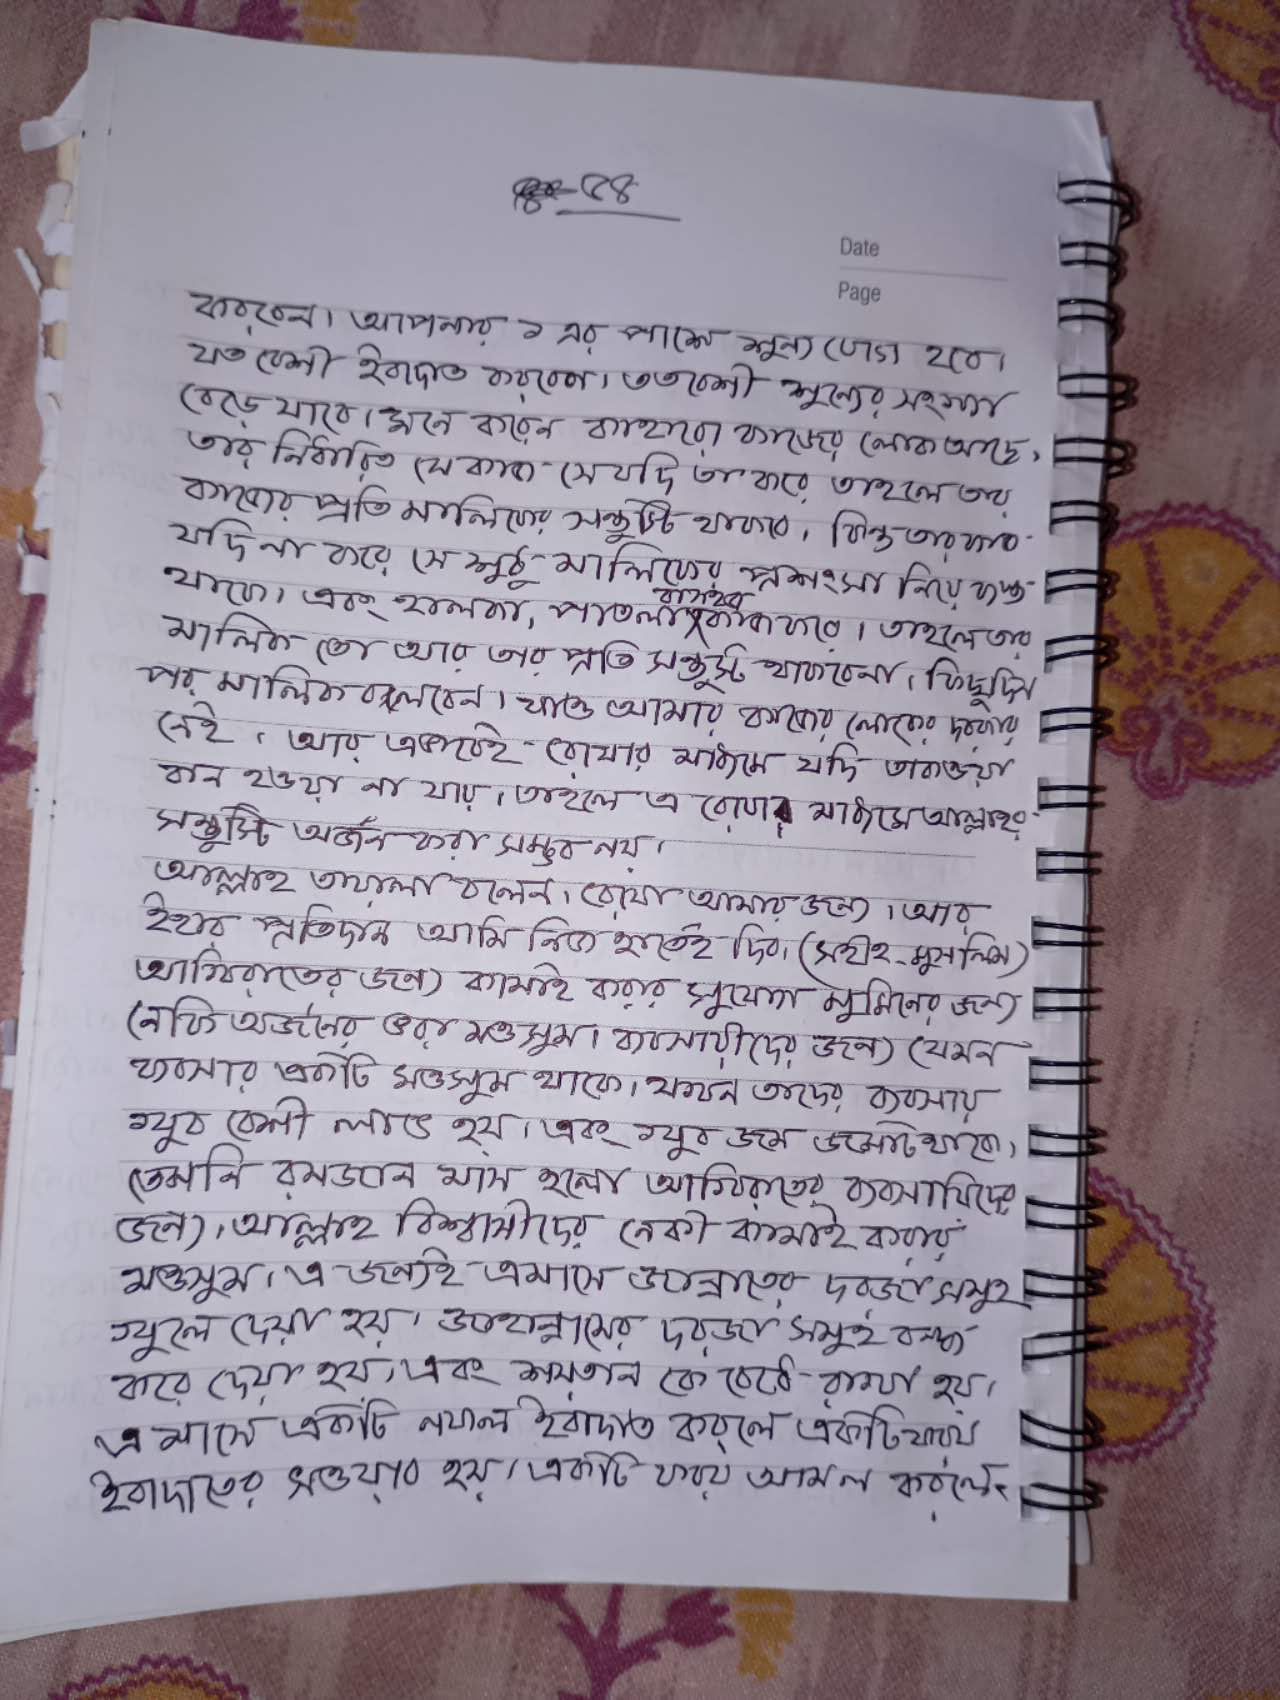 ৫৪
Date
Page
করবেন। আপনার ১ এর পাশে শুন্য যোগ হবে।
যত বেশী ইবাদাত করবেন। ততবেশী শুন্যের সংখ্যা
বেড়ে যাবে। মনে করেন কাহারো কাজের লোক আছে,
তার নির্ধারিত যে কাজ সে যদি তা করে তাহলে তার
কাজের প্রতি মালিকের সন্তুস্টি থাকবে, কিন্তু তার কাজ
যদি না করে সে শুধু মালিকের প্রশংসা নিয়ে ব্যস্ত
থাকে। এবং হালকা, পাতলা কাজ করে। তাহলে তার
মালিক তো আর তার প্রতি সন্তুস্ট থাকবেনা, কিছুদিন
পর মালিক বলবেন। যাও আমার কাজের লোকের দরকার
নেই। আর এভাবেই রোযার মাধ্যমে যদি তাকওয়া
বান হওয়া না যায়, তাহলে এ রোযার মাধ্যমে আল্লাহর
সন্তুস্টি অর্জন করা সম্ভব নয়।
আল্লাহ তায়ালা বলেন। রোযা আমার জন্য। আর
ইহার প্রতিদান আমি নিজ হাতেই দিব। (সহীহ-মুসলিম)
আখিরাতের জন্য কামাই করার সুযোগ মুমিনের জন্য
নেকি অর্জনের ভরা মওসুম। ব্যবসায়ীদের জন্য যেমন
ব্যবসার একটি মওসুম থাকে। যখন তাদের ব্যবসায়
খুব বেশী লাভ হয়। এবং খুব জম জমাট থাকে।
তেমনি রমজান মাস হলো আখিরাতের ব্যবসায়িদের
জন্য। আল্লাহ বিশ্বাসীদের নেকী কামাই করার
মওসুম। এ জন্যই এমাসে জান্নাতের দরজা সমুহ
খুলে দেয়া হয়। জাহান্নামের দরজা সমুহ বন্ধ
করে দেয়া হয়। এবং শয়তান কে বেধে রাখা হয়।
এ মাসে একটি নফল ইবাদাত করলে একটি ফরয
ইবাদাতের সওয়াব হয়। একটি ফরয আমল করলে